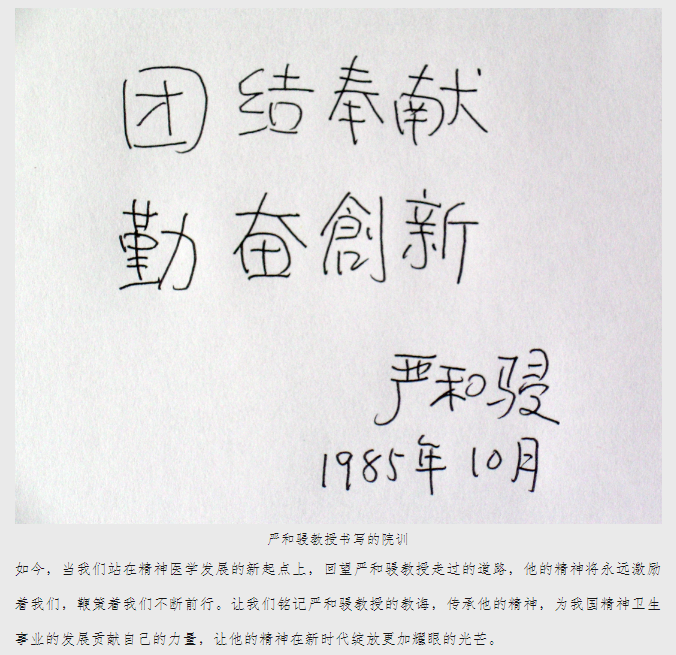 团结奉献
勤奋創新
严和骎
1985年10月
严和骎教授书写的院训
如今，当我们站在精神医学发展的新起点上，回望严和骎教授走过的道路，他的精神将永远激励
着我们，鞭策着我们不断前行。让我们铭记严和骎教授的教诲，传承他的精神，为我国精神卫生
事业的发展贡献自己的力量，让他的精神在新时代绽放更加耀眼的光芒。